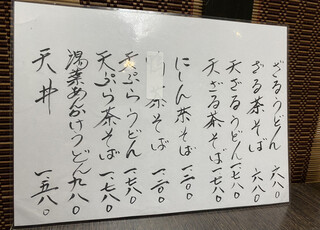 ざるうどん 六八〇
ざる茶そば 六八〇
天ざるうどん 一、一七八〇
天ざる茶そば 一、一七八〇
にしん茶そば 一、一二〇
茶そば 一、二〇
天ぷらうどん 一、七八〇
天ぷら茶そば 一、七八〇
湯葉あんかけうどん 九八〇
天丼 一、五八〇